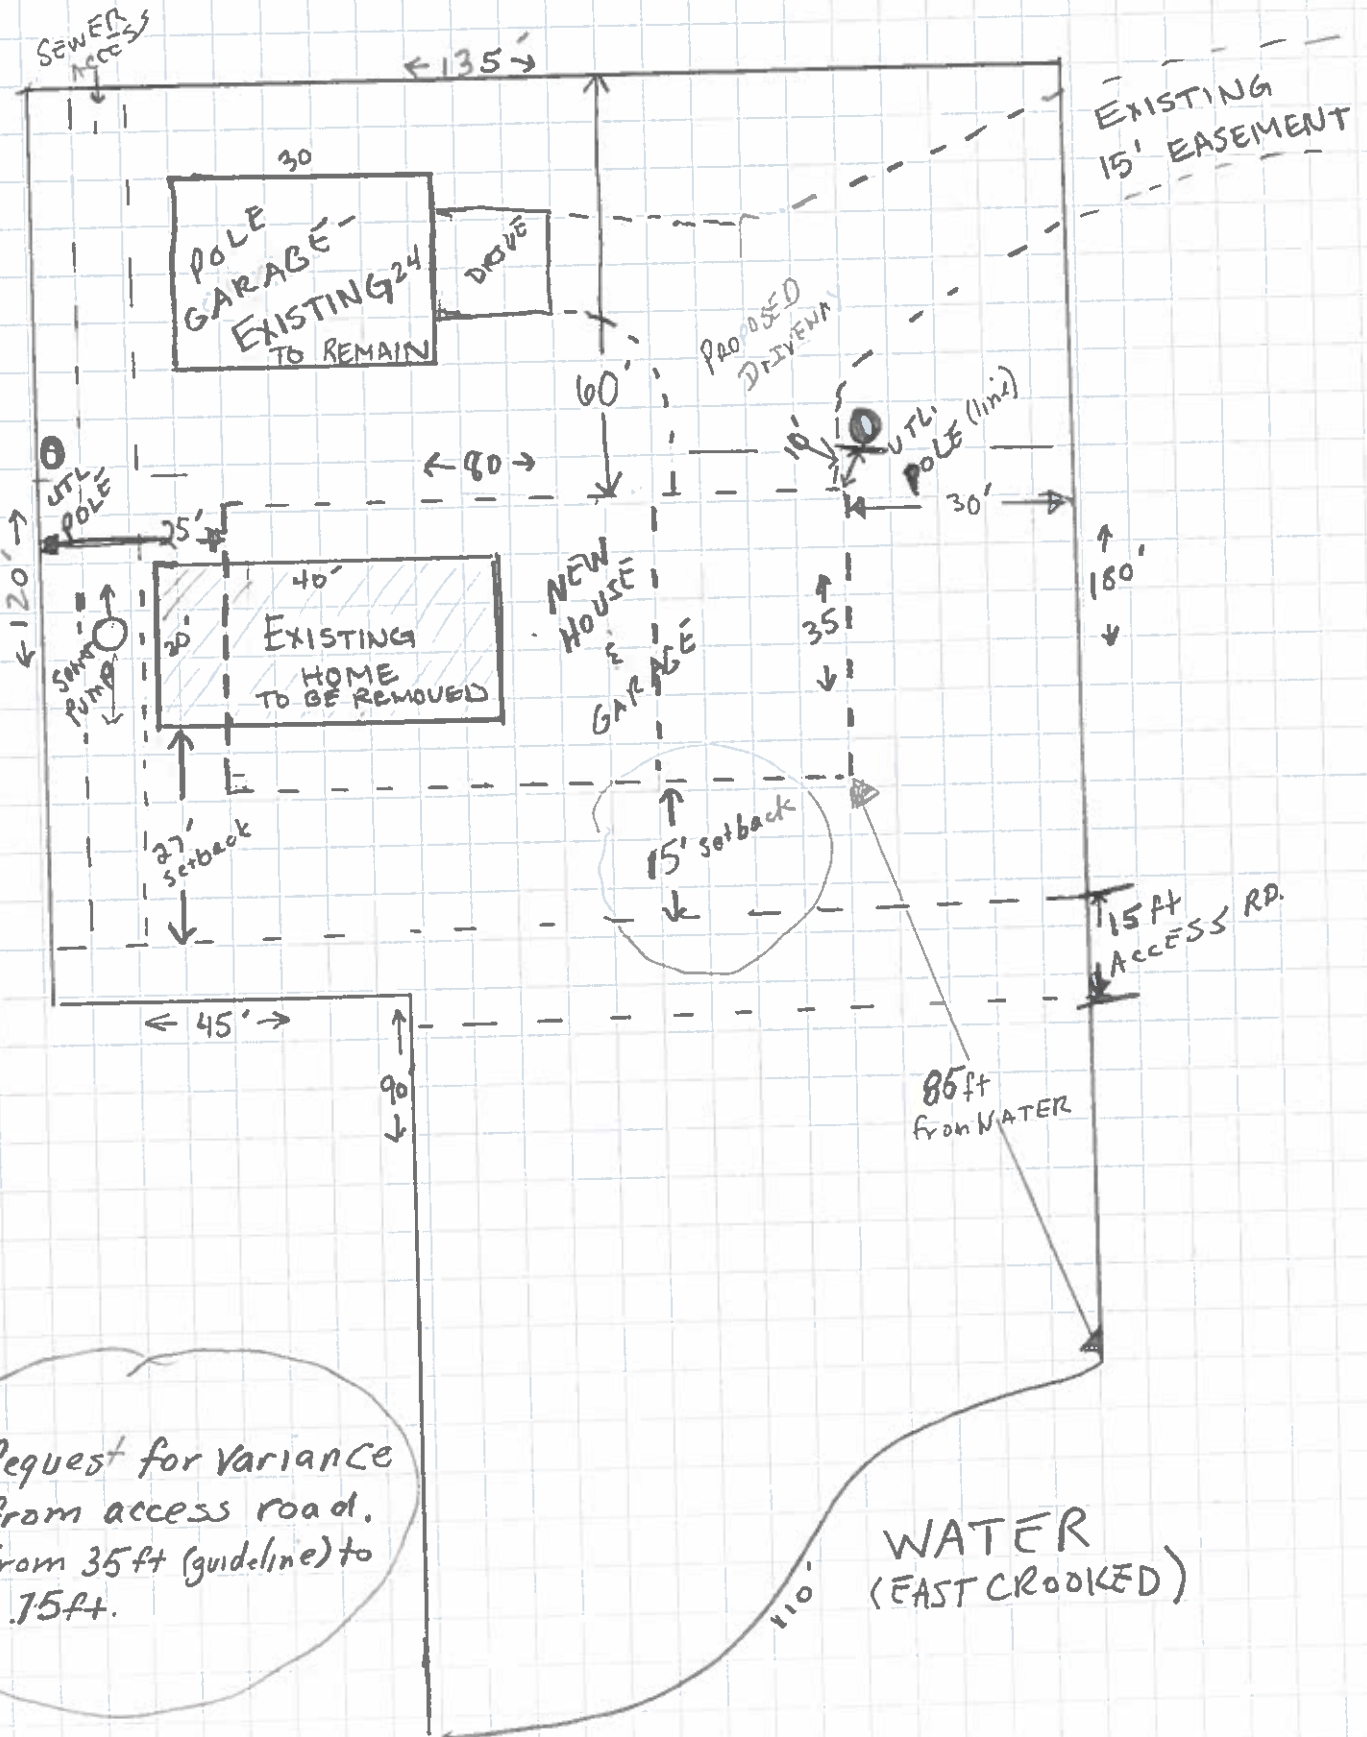 SEWER
ACCESS
← 135' →
EXISTING
15' EASEMENT
30
POLE
GARAGE -
EXISTING 24
TO REMAIN
DRIVE
PROPOSED
DRIVEWA
60'
UTL.
POLE (line)
10'
← 80 →
30'
UTL
POLE
25'
← 120' →
180'
40'
20'
EXISTING
HOME
TO BE REMOVED
NEW
HOUSE
&
GARAGE
35'
PUMP
27'
setback
15' setback
15 ft
ACCESS RD.
← 45' →
90
85 ft
from WATER
Request for variance
from access road.
from 35ft (guideline) to
15ft.
110'
WATER
(EAST CROOKED)